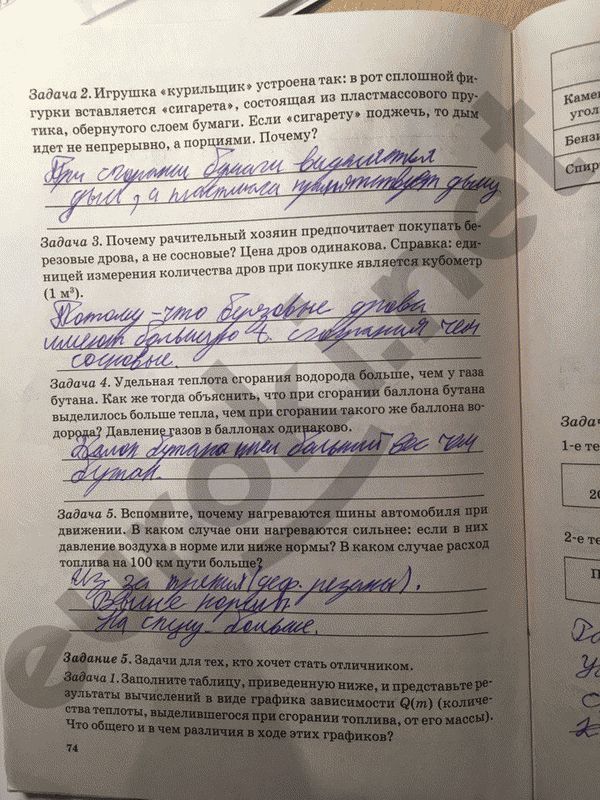 Задача 2. Игрушка «курильщик» устроена так: в рот сплошной фи-
гурки вставляется «сигарета», состоящая из пластмассового пру-
тика, обернутого слоем бумаги. Если «сигарету» поджечь, то дым
идет не непрерывно, а порциями. Почему?
При сгорании бумаги выделяется
дым, а пластмасса препятствует дыму
Задача 3. Почему рачительный хозяин предпочитает покупать бе-
резовые дрова, а не сосновые? Цена дров одинакова. Справка: еди-
ницей измерения количества дров при покупке является кубометр
(1 м³).
Потому-что берёзовые дрова
имеют большую t. сгорания чем
сосновые.
Задача 4. Удельная теплота сгорания водорода больше, чем у газа
бутана. Как же тогда объяснить, что при сгорании баллона бутана
выделилось больше тепла, чем при сгорании такого же баллона во-
дорода? Давление газов в баллонах одинаково.
бутана имел больший вес чем
бутан.
Задача 5. Вспомните, почему нагреваются шины автомобиля при
движении. В каком случае они нагреваются сильнее: если в них
давление воздуха в норме или ниже нормы? В каком случае расход
топлива на 100 км пути больше?
Из за трения (деф. резины).
Выше нормы
На спущ. больше.
Задание 5. Задачи для тех, кто хочет стать отличником.
Задача 1. Заполните таблицу, приведенную ниже, и представьте ре-
зультаты вычислений в виде графика зависимости Q(m) (количе-
ства теплоты, выделившегося при сгорании топлива, от его массы).
Что общего и в чем различия в ходе этих графиков?
74
Камен
угол
Бензи
Спирт
Зада
1-е те
20
2-е те
П
euroki.net